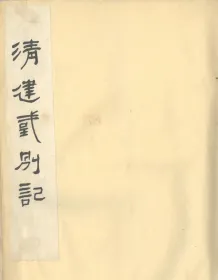 清建國別記